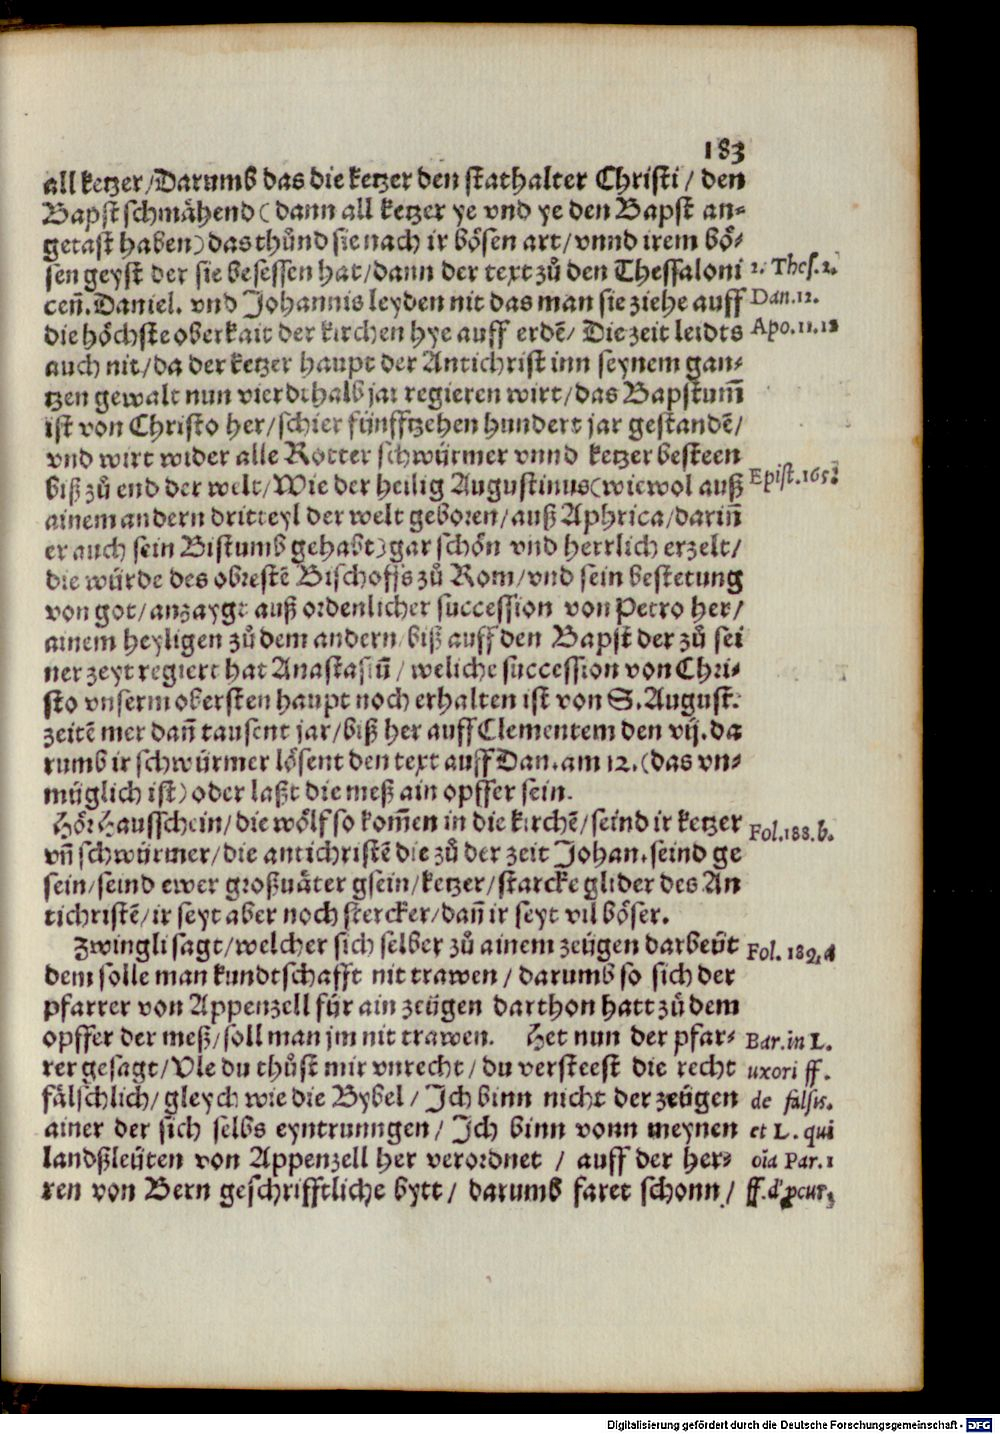 183
all ketzer/Darumb das die ketzer den stathalter Christi / den
Bapst schmähend ( dann all ketzer ye vnd ye den Bapst an-
getast haben) das thůnd sie nach ir bösen art/ vnnd irem bö-
sen geyst der sie besessen hat/dann der text zů den Thessaloni
2. Thes. 2.
ceñ. Daniel. vnd Johannis leyden nit das man sie ziehe auff
Dan. 12.
die höchste oberkait der kirchen hye auff erdē/ Die zeit leidts
Apo. 11. 12
auch nit/da der ketzer haupt der Antichrist inn seynem gan-
tzen gewalt nun vierdthalb jar regieren wirt/das Bapstum̄
ist von Christo her/schier fünfftzehen hundert jar gestandē/
vnd wirt wider alle Rotter schwürmer vnnd ketzer besteen
biß zů end der welt/Wie der heilig Augustinus(wiewol auß
Epist. 165.
ainem andern dritteyl der welt geboren/auß Aphrica/darin̄
er auch sein Bistumb gehabt)gar schön vnd herrlich erzelt/
die würde des obrestē Bischoffs zů Rom/vnd sein bestetung
von got/anzaygt auß ordenlicher succession von Petro her/
ainem heyligen zů dem andern/biß auff den Bapst der zů sei
ner zeyt regiert hat Anastasiū / weliche succession von Chri-
sto vnserm obersten haupt noch erhalten ist von S. August.
zeitē mer dañ tausent jar/biß her auff Clementem den vij. da
rumb ir schwürmer lösent den text auff Dan. am 12. (das vn-
müglich ist) oder laßt die meß ain opffer sein.
Hör Hausschein/die wölf so kom̄en in die kirchē/seind ir ketzer
Fol. 188. b.
vñ schwürmer/die antichristē die zů der zeit Johan. seind ge
sein/seind ewer großuäter gsein/ketzer/starcke glider des An
tichristē/ir seyt aber noch stercker/dañ ir seyt vil böser.
Zwingli sagt/welcher sich selber zů ainem zeügen darbeüt
Fol. 189. a
dem solle man kundtschafft nit trawen / darumb so sich der
pfarrer von Appenzell für ain zeügen darthon hatt zů dem
opffer der meß/soll man jm nit trawen. Het nun der pfar-
Bar. in L.
rer gesagt/Vle du thůst mir vnrecht/du versteest die recht
uxori ff.
fälschlich/gleych wie die Bybel/ Jch binn nicht der zeügen
de falsis.
ainer der sich selbs eyntrunngen/ Jch binn vonn meynen
et L. qui
landßleüten von Appenzell her verordnet / auff der her-
oīa Par. 1
ren von Bern geschrifftliche bytt/ darumb faret schonn/
ff. d' pcur.
Digitalisierung gefördert durch die Deutsche Forschungsgemeinschaft - DFG